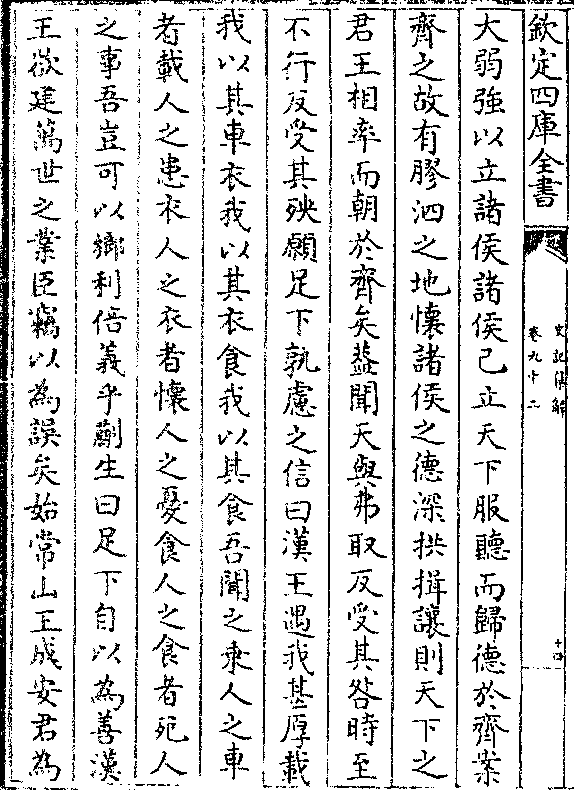 欽定四庫全書
史記集解
卷九十二
十四
大弱強以立諸侯諸侯已立天下服聽而歸德於齊案
齊之故有膠泗之地懐諸侯之德深拱揖讓則天下之
君王相率而朝於齊矣葢聞天與弗取反受其咎時至
不行反受其殃願足下孰慮之信曰漢王遇我甚厚載
我以其車衣我以其衣食我以其食吾聞之乗人之車
者載人之患衣人之衣者懐人之憂食人之食者死人
之事吾豈可以鄉利倍義乎蒯生曰足下自以為善漢
王欲建萬世之業臣竊以為誤矣始常山王成安君為